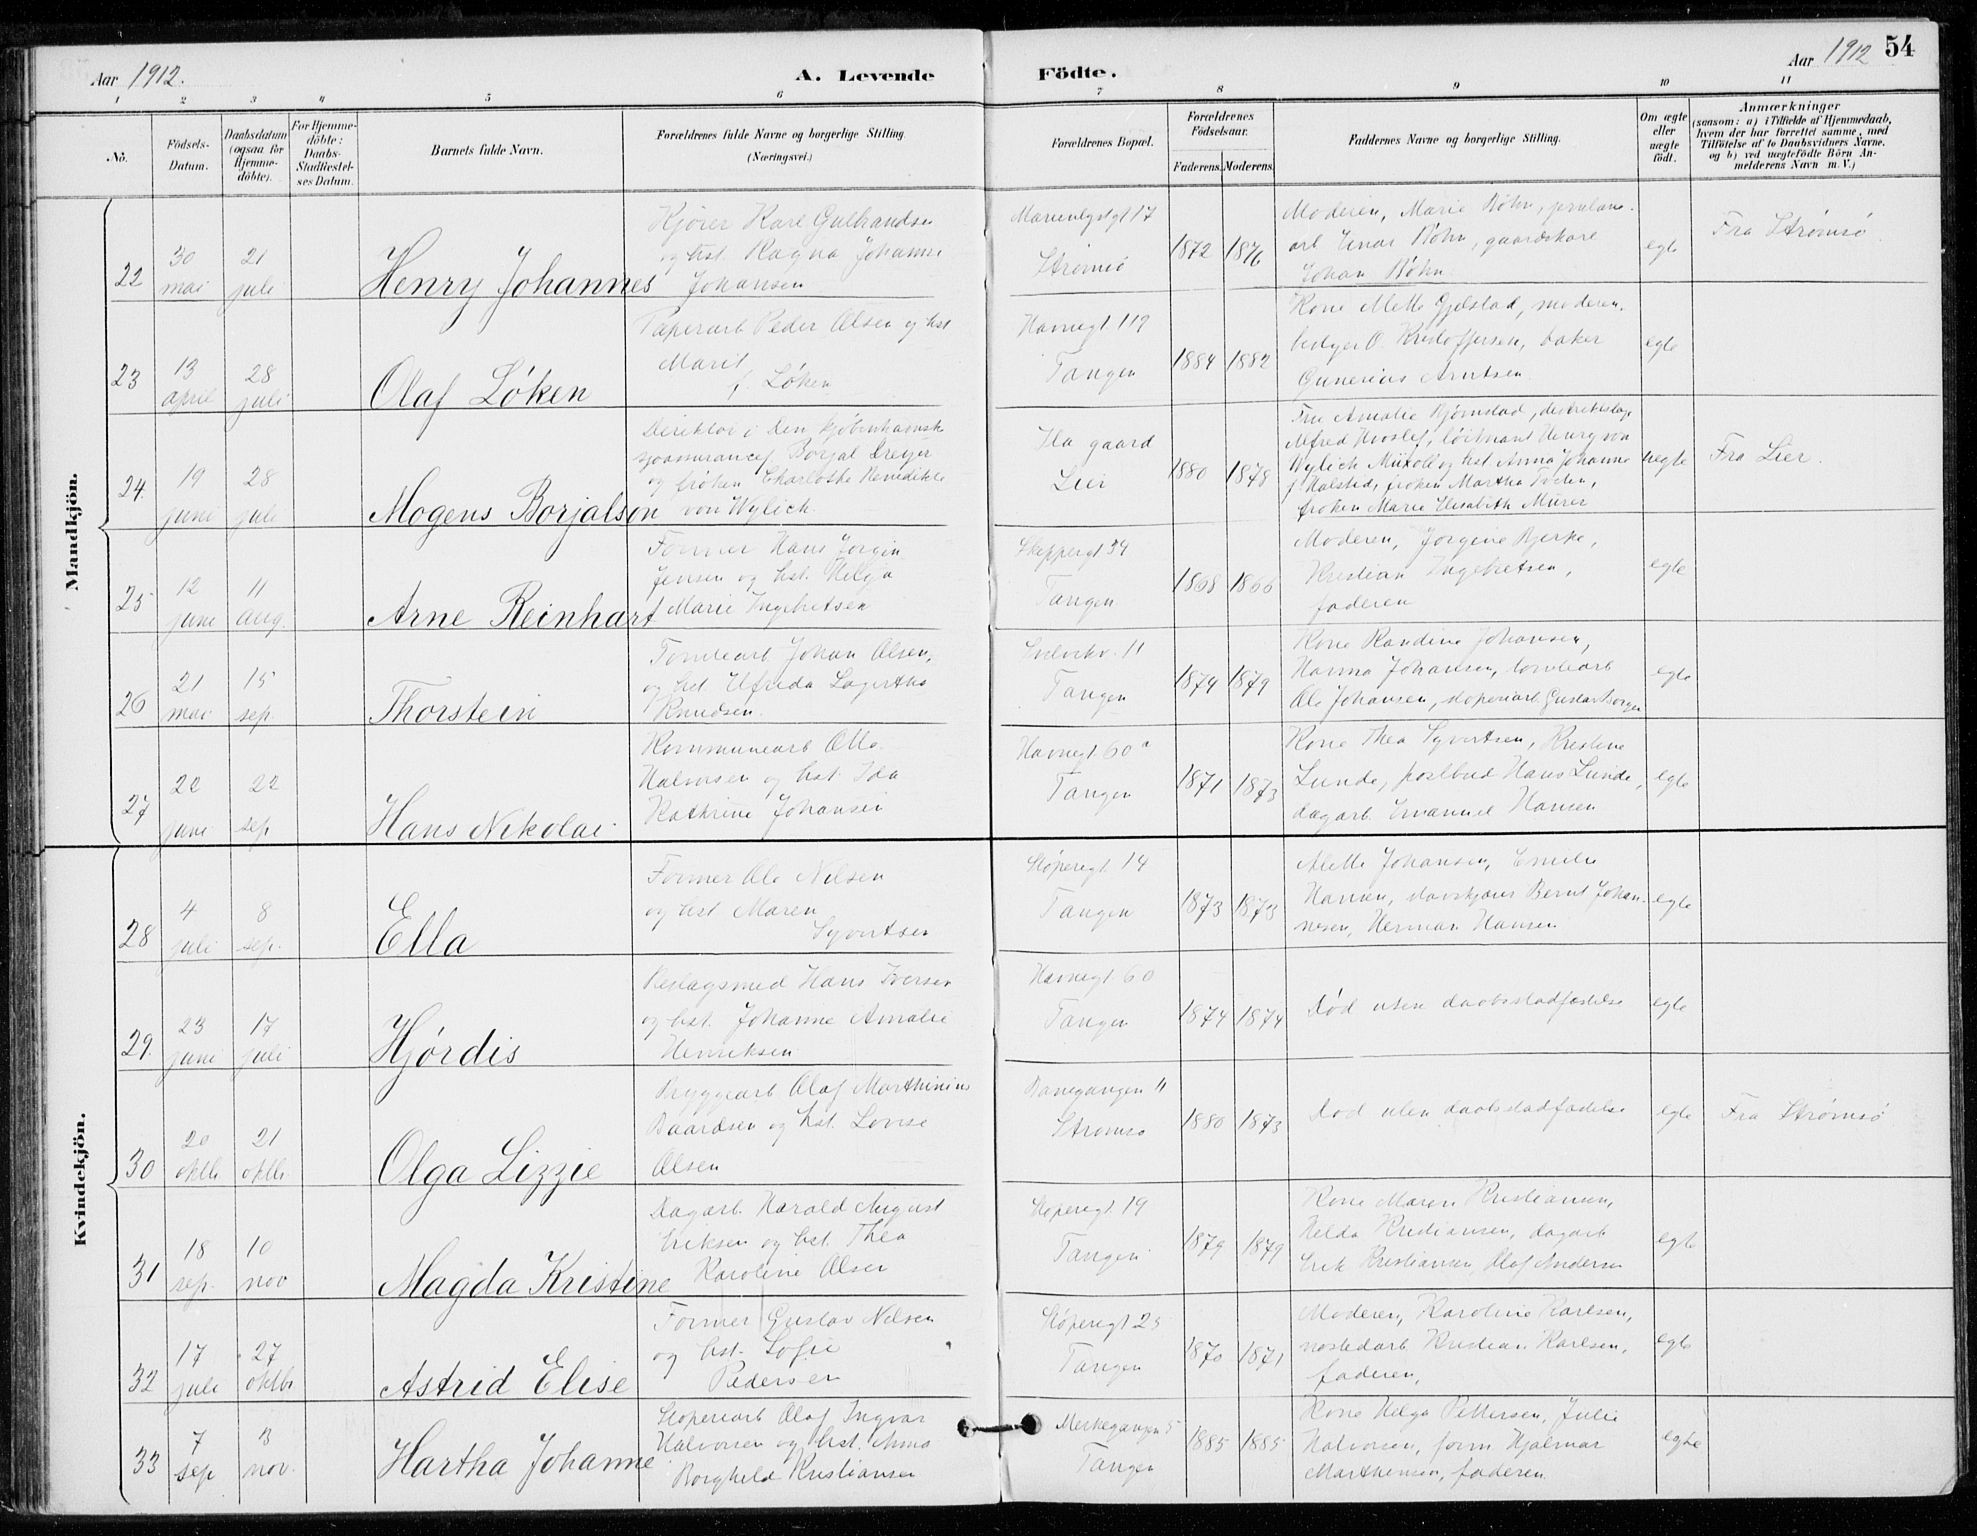 Aar 1912.
A. Levende Födte.
Aar 1912
54
1 2 3 4 5 6 7 8 9 10 11
No.
Födsels-Datum.
Daabsdatum (ogsaa for Hjemme-döbte).
For Hjemme-döbte: Daabs-Stadfæstel-ses Datum.
Barnets fulde Navn.
Forældrenes fulde Navne og borgerlige Stilling.
(Næringsvei.)
Forældrenes Bopæl.
Forældrenes Födselsaar.
Faderens. Moderens.
Faddernes Navne og borgerlige Stilling.
Om ægte eller uægte födt.
Anmærkninger
(saasom: a) i Tilfælde af Hjemmedaab, hvem der har forrettet samme, med Tilföielse af to Daabsvidners Navne, og b) ved uægtefödte Börn An-melderens Navn m. V.)
Mandkjön.
22 30 mai 21 juli Henry Johannes
Kjører Karl Gulbrandsen
og hst. Ragna Johanne
Johansen
17
Strømsö
1872 1876
Moderen, Marie Bøhn,
arb Einar Bøhn, gaardskarl
Johan Bøhn
egte
Fra Strømsö
23 13 april 28 juli Olaf Löken
Papirarb Peder Olsen og hst
Marit
f. Löken
Havnegt 119
Tangen
1884 1882
Kone Mette Gjelstad, moderen,
Holger O. Kristoffersen, baker
Gunerius Arntsen
egte
24. 19 juni 28 juli Mogens Borjalson
Direktør i Den kjøbenhavnske
Borjal Dreyer
og frøken Charlotte Benedikte
von Wylich
gaard
Lier
1880 1878
Fru Amalie Bjørnstad,
Alfred løitnant Henry von
Wylich og hst. Anna Johanne
f. Halsted, frøken Martha
frøken Marie Elisabeth
uegte
Fra Lier.
25 12 juni 11 aug. Arne Reinhart
Former Hans Jørgen
Jensen og hst. Helga
Marie Ingebretsen
Skippergt 34
Tangen
1868 1866
Moderen, Jørgine Bjerke,
Kristian Ingebretsen,
faderen
egte
26 21 mai 15 sep. Thorstein
Tomtearb Johan Olsen,
og hst. Elfrida Lagertha
Knudsen.
Svelvikv. 11
Tangen
1874 1879
Kone Randine Johansen,
Hanna Johansen, tomtearb
Ole Johansen, støperiarb. Gustav Borgen
egte
27 22 juni 22 sep Hans Nikolai
Kommunearb Otto
Halvorsen og hst. Ida
Kathrine Johansen
Havnegt. 60 a
Tangen
1871 1873
Kone Thea Syvertsen, Kristine
Lunde, postbud Hans Lunde,
dagarb. Emanuel Hansen
egte
Kvindekjön.
28 4 juli 8 sep. Ella
Former Ole Nilsen
og hst Maren
Syvertsen
Støperegt 14
Tangen
1873 1873
Alette Johansen, Emilie
Hansen, Bernt Johan-
nesen, Herman Hansen
egte
29. 23 juni 17 juli Hjørdis
Hans Iversen
og hst. Johanne Amalie
Henriksen
Havnegt 60
Tangen
1874 1874
Død uten daabsstadfæstelse
egte
30 20 oktb 21 oktb Olga Lizzie
Bryggearb Olaf Marthinius
Baardsen og hst. Lovise
Olsen
Banegangen 11
Strømsø
1880 1873
Død uten daabsstadfæstelse
egte
Fra Strømsö
31 18 sep. 10 nov Magda Kristine
Dagarb. Harald August
Eriksen og hst. Thea
Karoline Olsen
Støperegt 19
Tangen
1879 1879
Kone Maren Kristiansen,
Helda Kristiansen, dagarb
Erik Kristiansen, Olaf Andersen
egte
32 17 juli 27 oktbr Astrid Elise
Former Gustav Nilsen
og hst. Sofie
Pedersen
Støperegt 25
Tangen
1870 1871
Moderen, Karoline Karlsen,
Kristian Karlsen,
faderen,
egte
33 7 sep 3 nov. Hartha Johanne
Støperiarb Olaf Ingvar
Halvorsen og hst. Anna
Borghild Kristiansen
5
Tangen
1885 1885
Kone Helga Pettersen, Julie
Halvorsen, form Hjalmar
Marthinsen, faderen.
egte